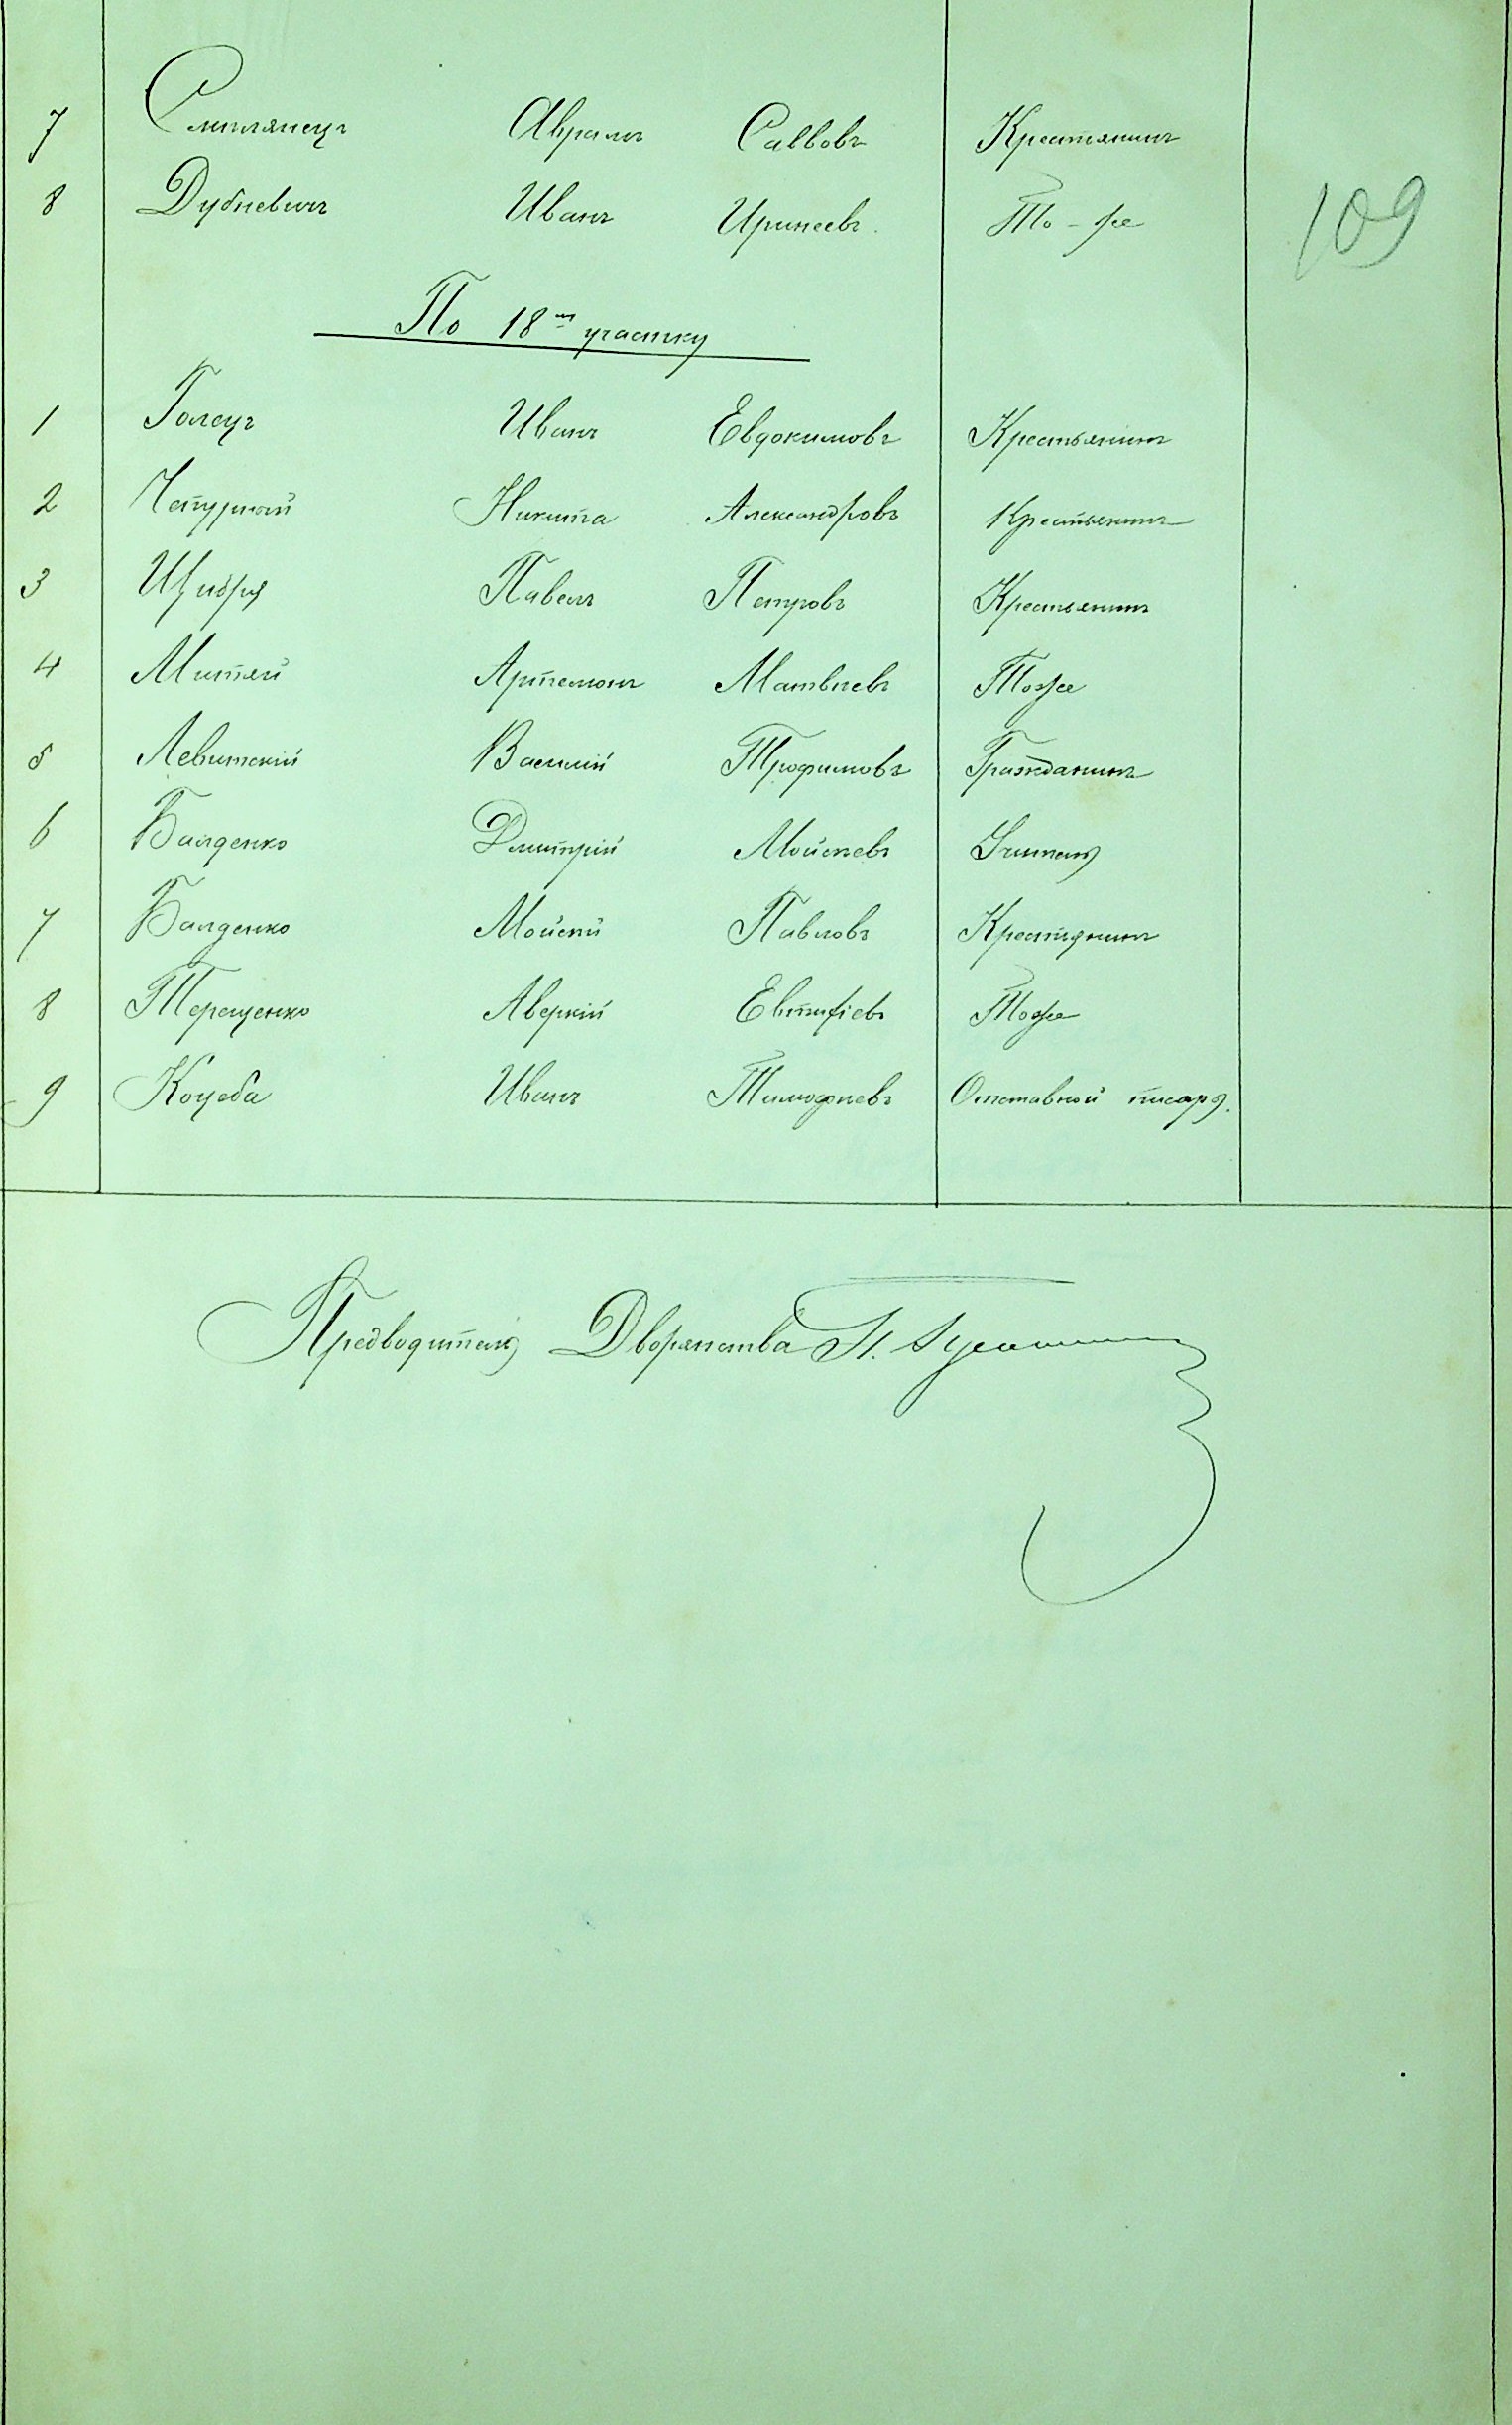 7 Смилянецъ Аврамъ Саввовъ Крестьянинъ
8 Дубневичъ Иванъ Иринеевъ. То-же
109
По 18му участку
1 Голецъ Иванъ Евдокимовъ Крестьянинъ
2 Чепурный Никита Александровъ Крестьянинъ
3 Цибря Павелъ Петровъ Крестьянинъ
4 Митяй Артемонъ Матвѣевъ Тоже
5 Левитскій Василій Трофимовъ Гражданинъ
6 Балденко Дмитрій Мойсѣевъ Учитель
7 Балденко Мойсей Павловъ Крестьянинъ
8 Терещенко Аверкій Евтифіевъ Тоже
9 Коцеба Иванъ Тимофѣевъ Отставной писарь.
Предводитель Дворянства П.